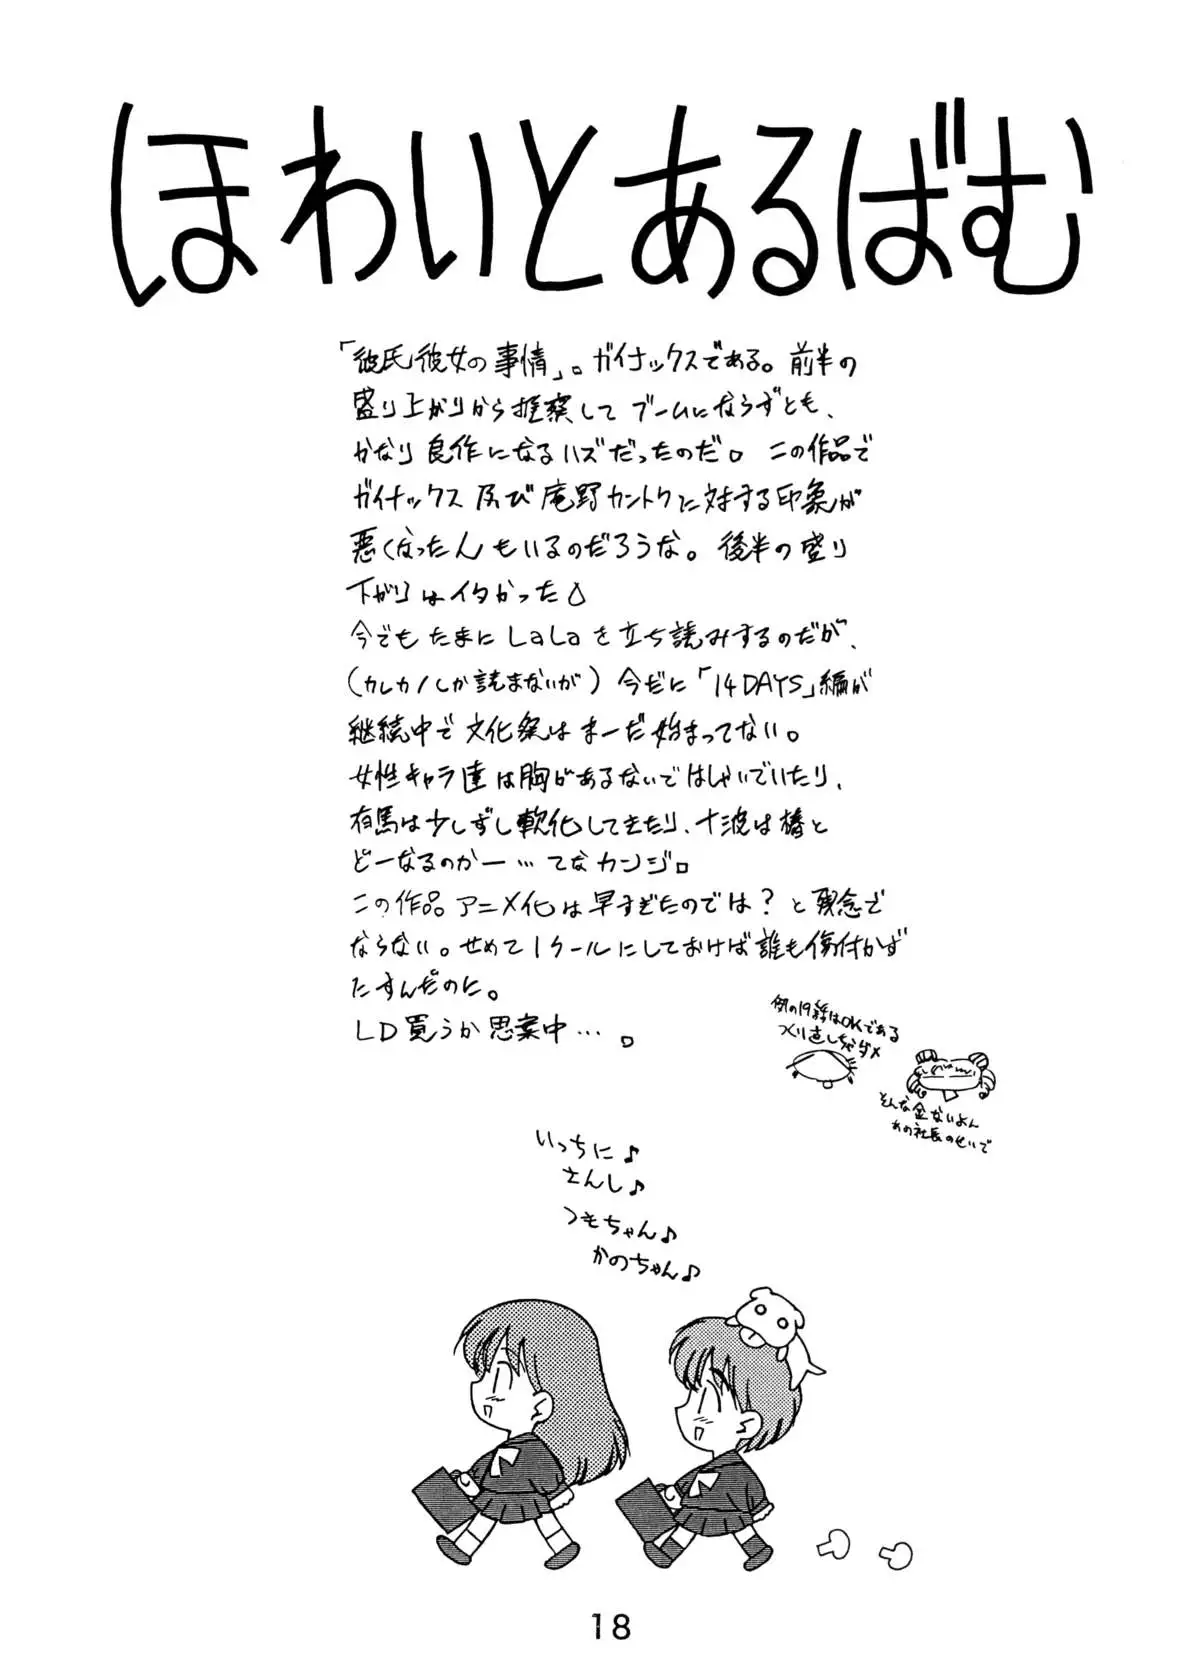 ほわいとあるばむ
「彼氏彼女の事情」。ガイナックスである。前半の
盛り上がりから推察してブームにならずとも、
かなり良作になるハズだったのだ。この作品で
ガイナックス及び庵野カントクに対する印象が
悪くなったんもいるのだろうな。後半の盛り
下がりはイタかった
今でもたまにLaLaを立ち読みするのだが、
(カレカノしか読まないが)今だに「14DAYS」編が
継続中で文化祭はまーだ始まってない。
女性キャラ達は胸があるないではしゃいでいたり、
有馬は少しずし軟化してきたり、十波は椿と
どーなるのかー…てなカンジ。
この作品アニメ化は早すぎたのでは?と残念で
ならない。せめて1クールにしておけば誰も傷付かず
たすんだのに。
LD買うか思案中…。
例の19話はOKである
つくり直しちゃダメ
そんな金ないよん
あの社長のせいで
いっちに♪
さんし♪
つもちゃん♪
かのちゃん♪
18